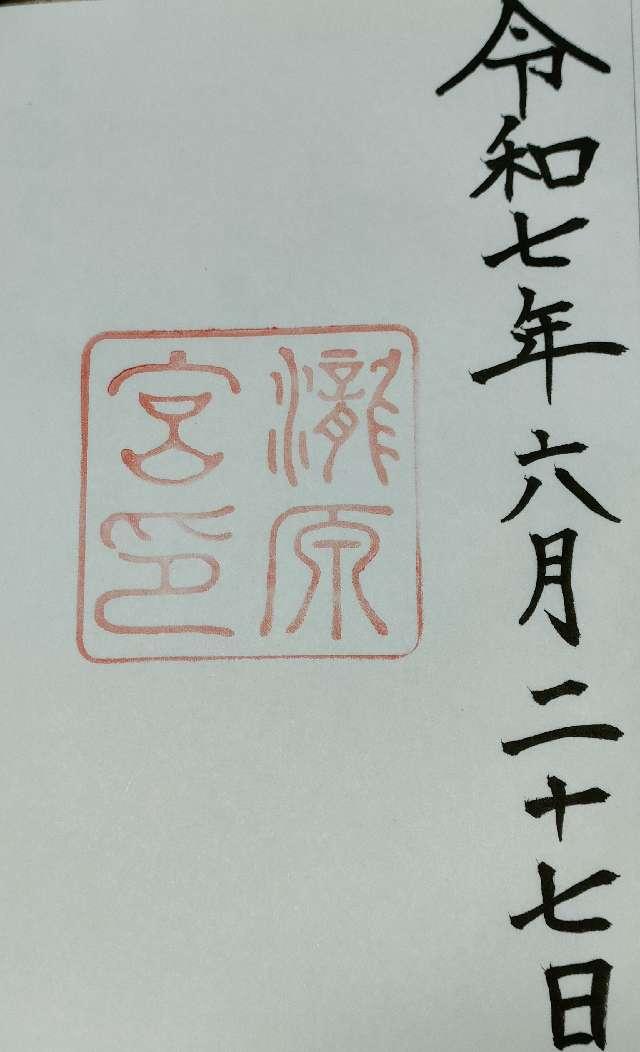 令和七年六月二十七日
瀧原
宮印